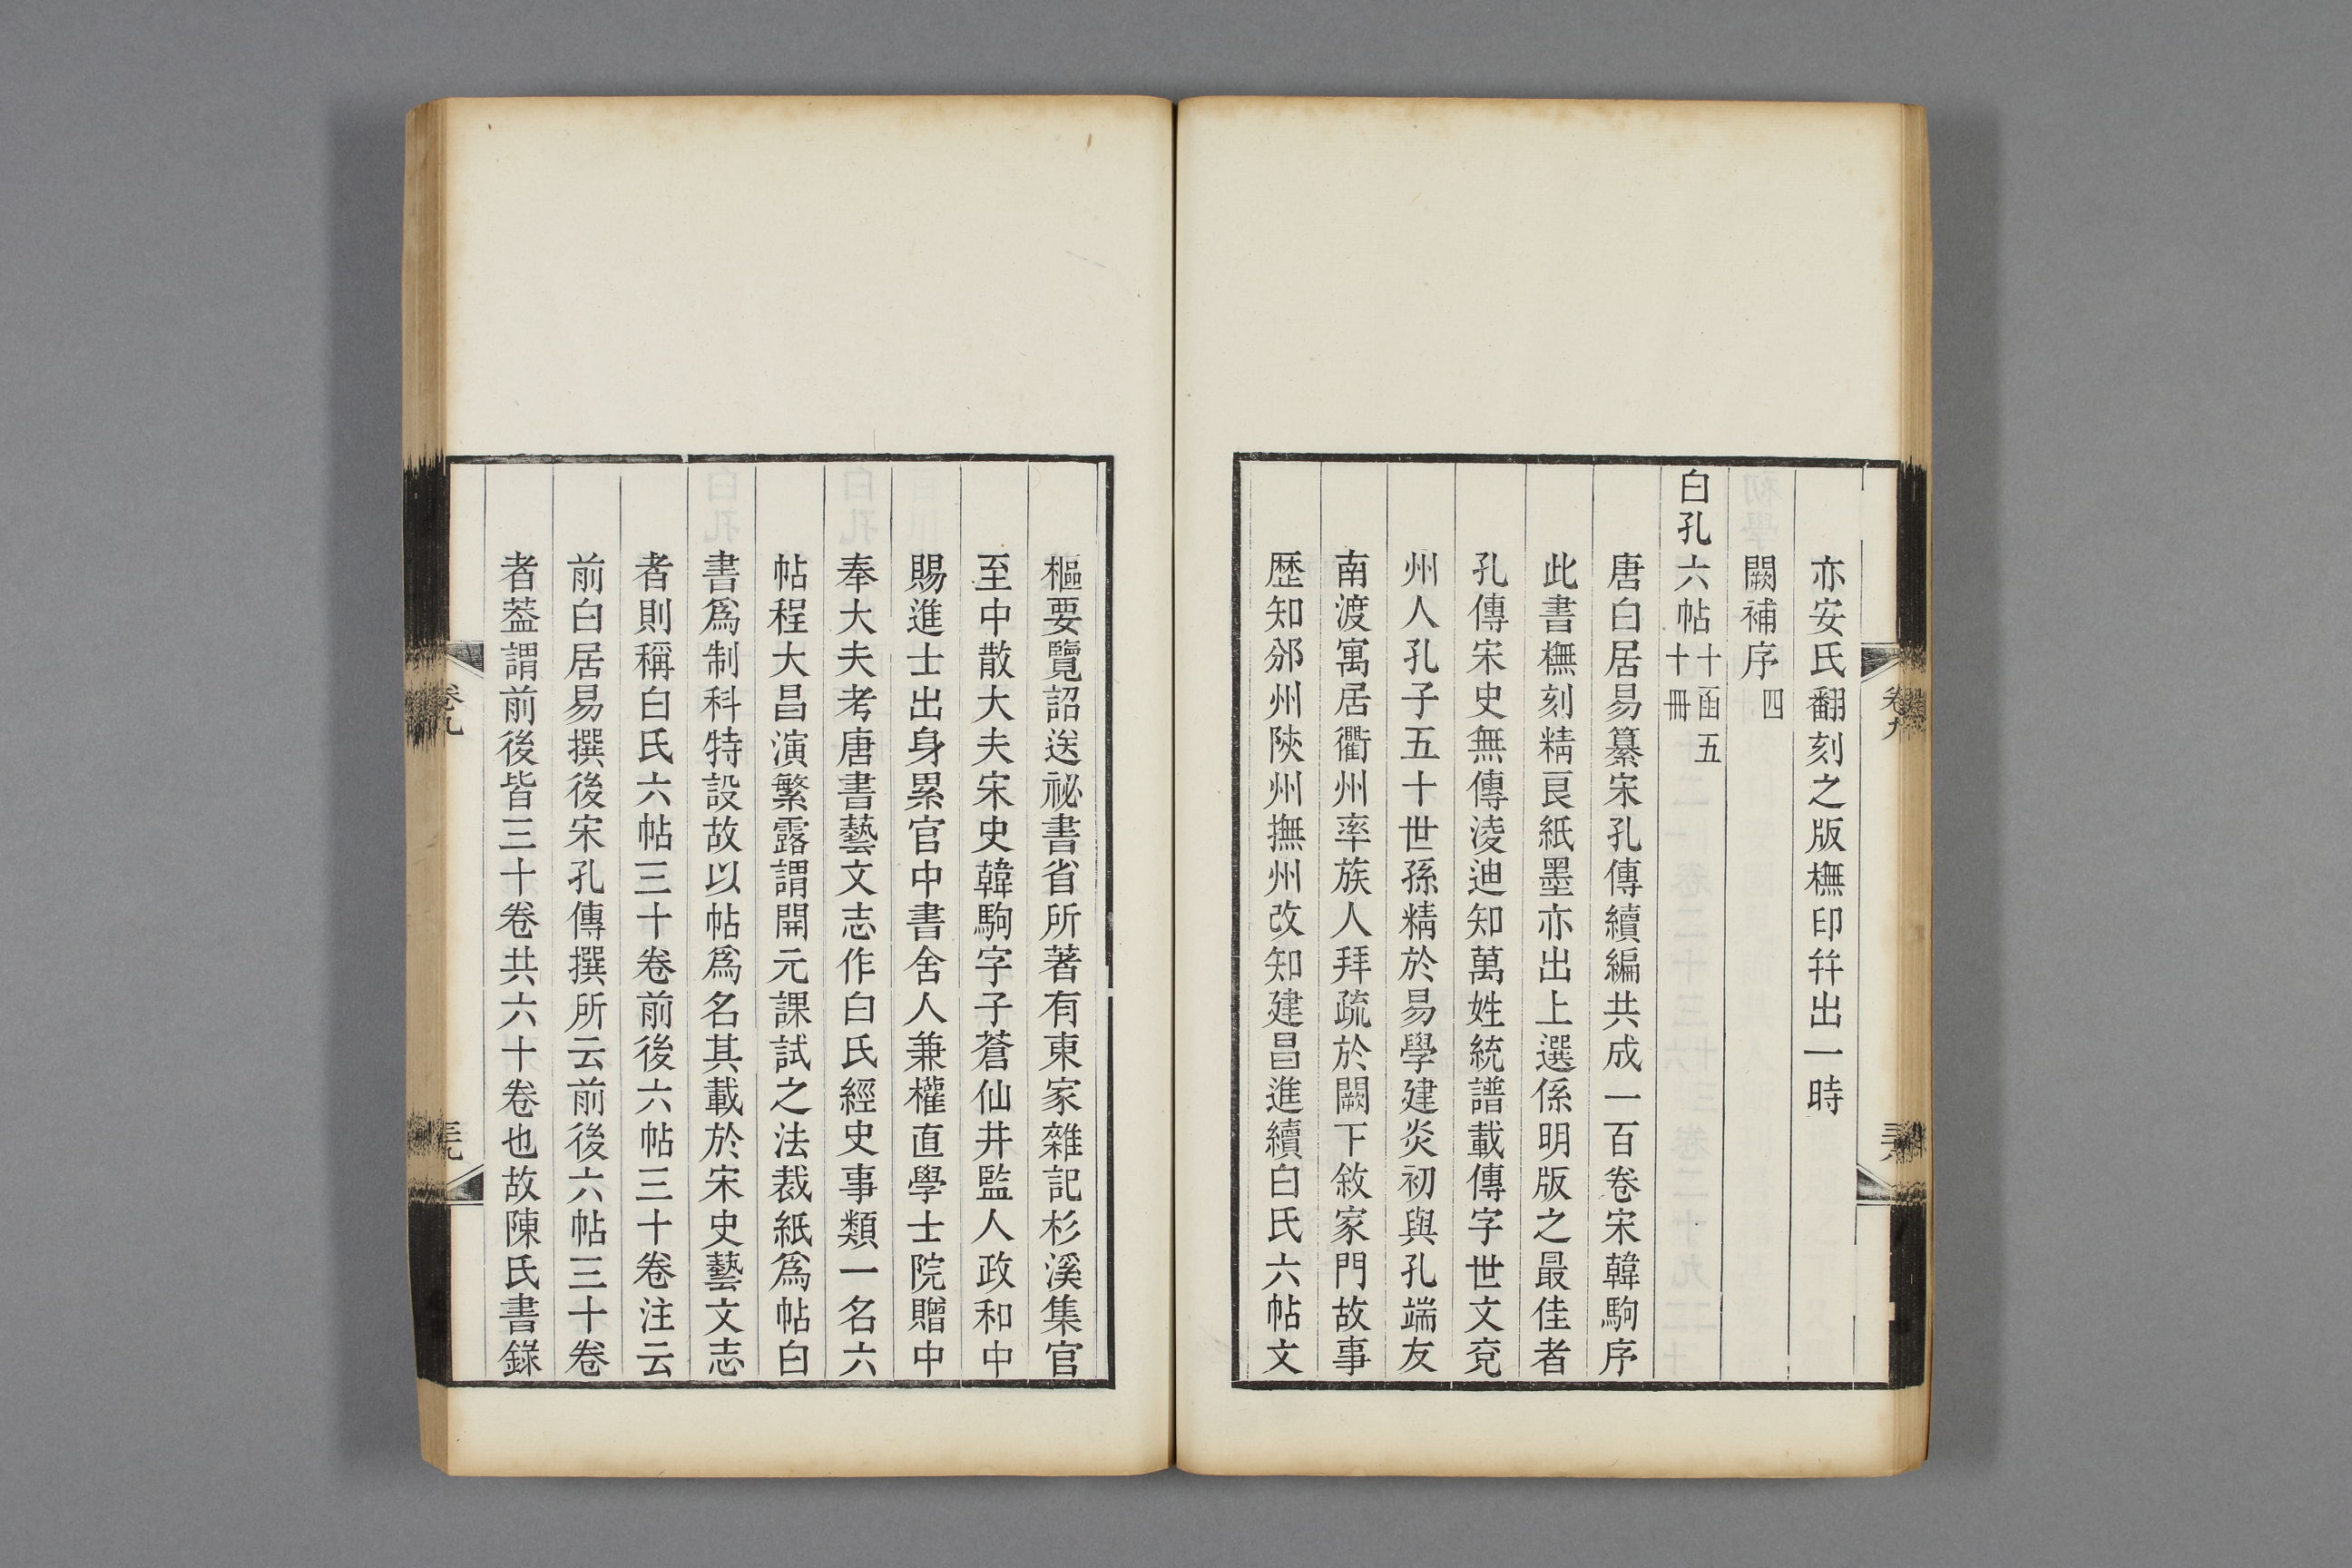 亦安氏翻刻之版橅印幷出一時
闕補序四
白孔六帖十函五十冊
唐白居易纂宋孔傳續編共成一百卷宋韓駒序
此書橅刻精良紙墨亦出上選係明版之最佳者
孔傳宋史無傳淩迪知萬姓統譜載傳字世文兗
州人孔子五十世孫精於易學建炎初與孔端友
南渡寓居衢州率族人拜疏於闕下敘家門故事
歷知邠州陝州撫州改知建昌進續白氏六帖文
樞要覽詔送祕書省所著有東家雜記杉溪集官
至中散大夫宋史韓駒字子蒼仙井監人政和中
賜進士出身累官中書舍人兼權直學士院贈中
奉大夫考唐書藝文志作白氏經史事類一名六
帖程大昌演繁露謂開元課試之法裁紙爲帖白
書爲制科特設故以帖爲名其載於宋史藝文志
者則稱白氏六帖三十卷前後六帖三十卷注云
前白居易撰後宋孔傳撰所云前後六帖三十卷
者葢謂前後皆三十卷共六十卷也故陳氏書錄
卷九
卷九